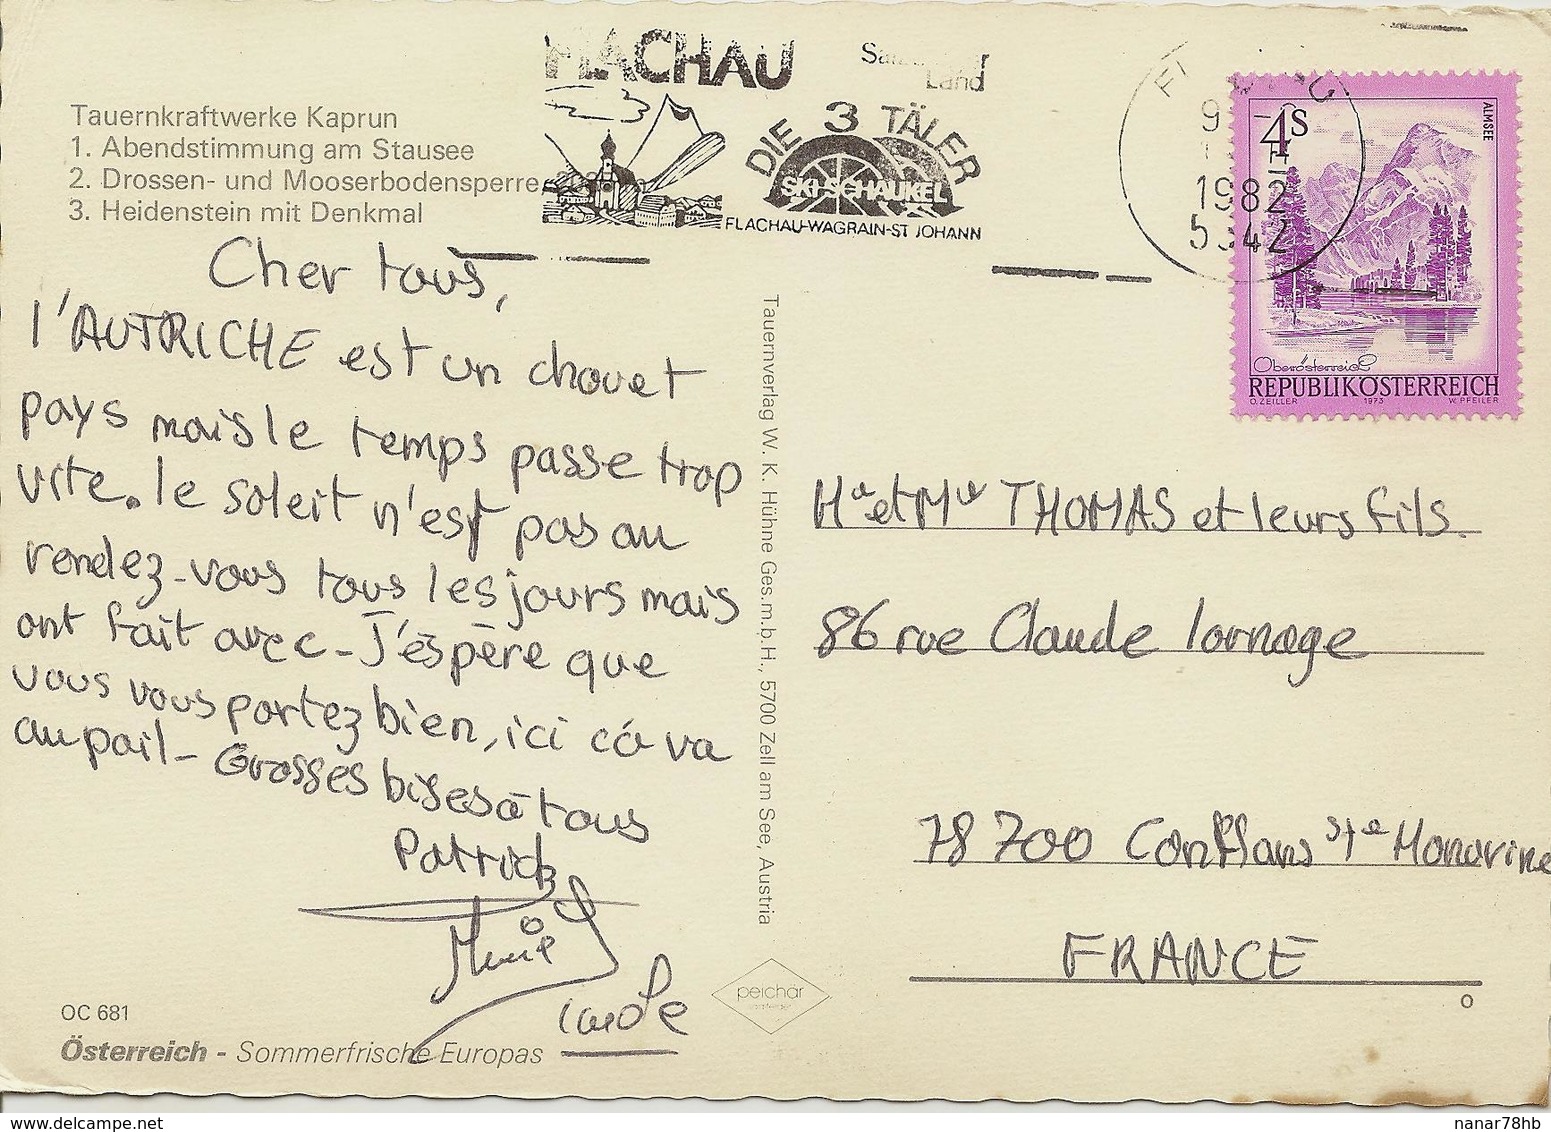 Tauernkraftwerke Kaprun
1. Abendstimmung am Stausee
2. Drossen- und Mooserbodensperre
3. Heidenstein mit Denkmal
FLACHAU
Land
DIE 3 TÄLER
SKI-SCHAUKEL
FLACHAU-WAGRAIN-ST JOHANN
1982
4S
ALMSEE
Oberösterreich
REPUBLIK ÖSTERREICH
O. ZEILLER 1973 W. PFEILER
Cher tous,
l'AUTRICHE est un chouet
pays mais le temps passe trop
vite. le soleil n'est pas au
rendez-vous tous les jours mais
ont fait avec - J'éspère que
vous vous portez bien, ici cá va
au poil - Grosses bises à tous
Patrick
Tauernverlag W. K. Hühne Ges.m.b.H., 5700 Zell am See, Austria
THOMAS et leurs fils.
86 rue Claude
78 700 Conflans Ste Honorine
FRANCE
peichar
OC 681
Österreich - Sommerfrische Europas
nanar78hb